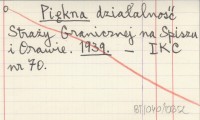 Piękna działalność
Straży Granicznej na Spiszu
i Orawie. 1939. — IKC
nr 70.